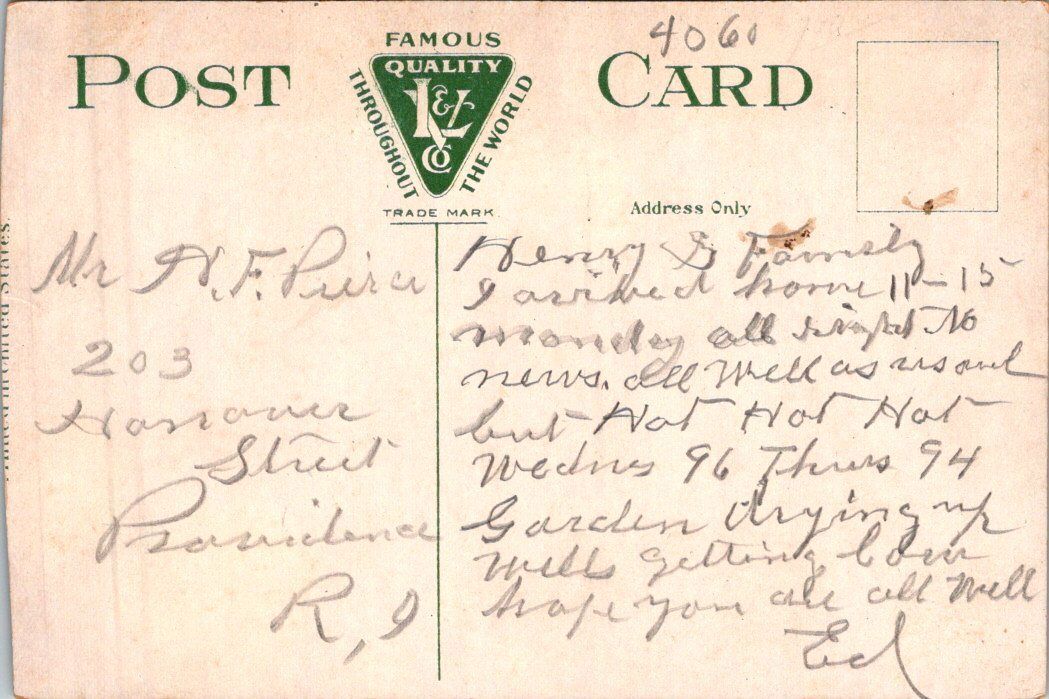 4060
POST CARD
FAMOUS
QUALITY
THROUGHOUT
THE WORLD
K & L
CO
TRADE MARK
Address Only
Mr H. F. Pierce
203
Hanover
Street
Providence
R, I
Henry & Family
I arived home 11-15
monday all right No
news. all Well as usual
but Hot Hot Hot
Wednes 96 Thurs 94
Garden drying up
Wells getting low
hope you are all Well
Ed